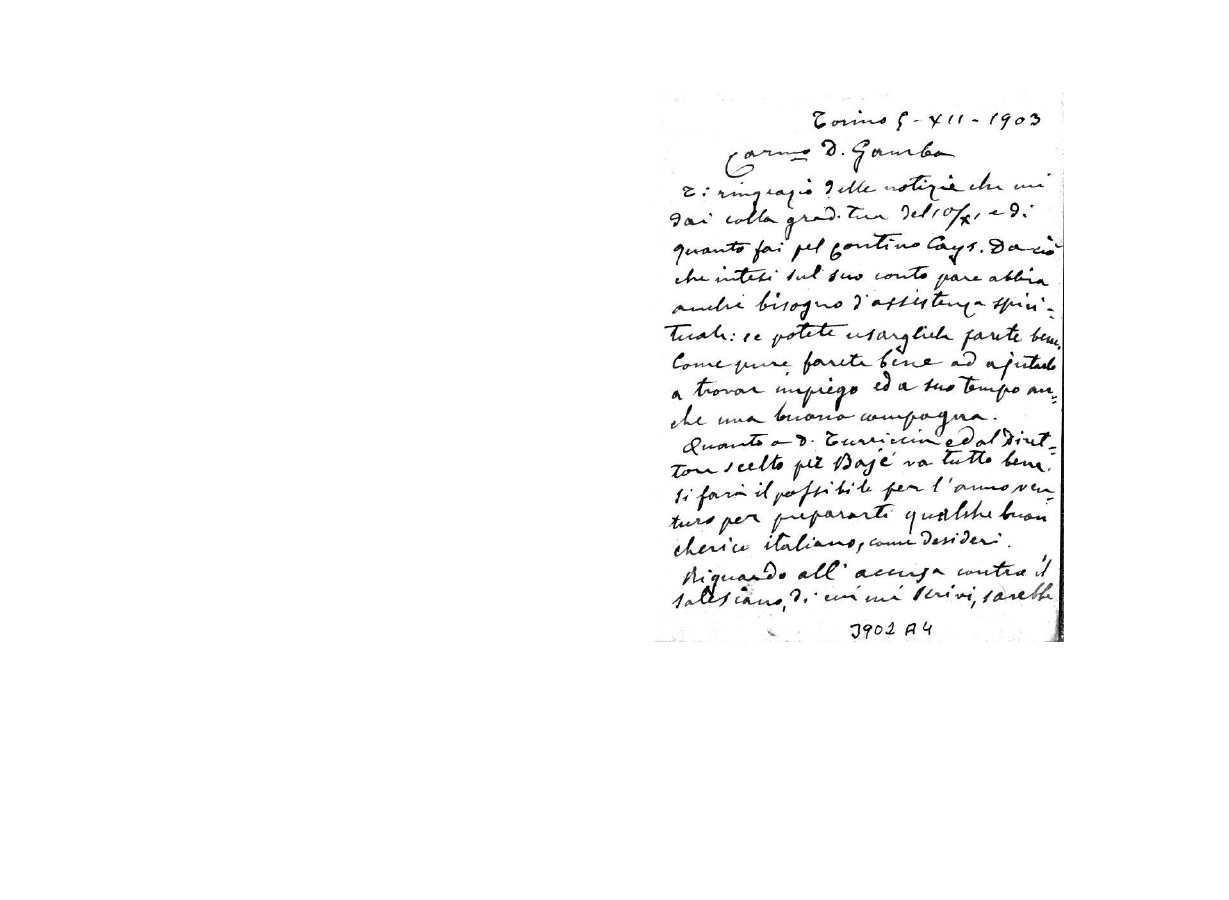 Torino 5 - XII - 1903
Carmo D. Gamba
Ti ringrazio delle notizie che mi
dai colla grad. tua del 10/X, e di
quanto fai pel contino Cays. Da ciò
che intesi sul suo conto pare abbia
anche bisogno d'assistenza spiri=
tuale: se potete usargliela farete bene.
Come pure farete bene ad ajutarlo
a trovar impiego ed a suo tempo an=
che una buona compagna.
Quanto a D. Turriccia ed al Diret=
tore scelto per Bajé va tutto bene.
Si farà il possibile per l'anno ven=
turo per prepararti qualche buon
cherico italiano, come desideri.
Riguardo all' accusa contro il
salesiano, di cui mi scrivi, sarebbe
J902 A4